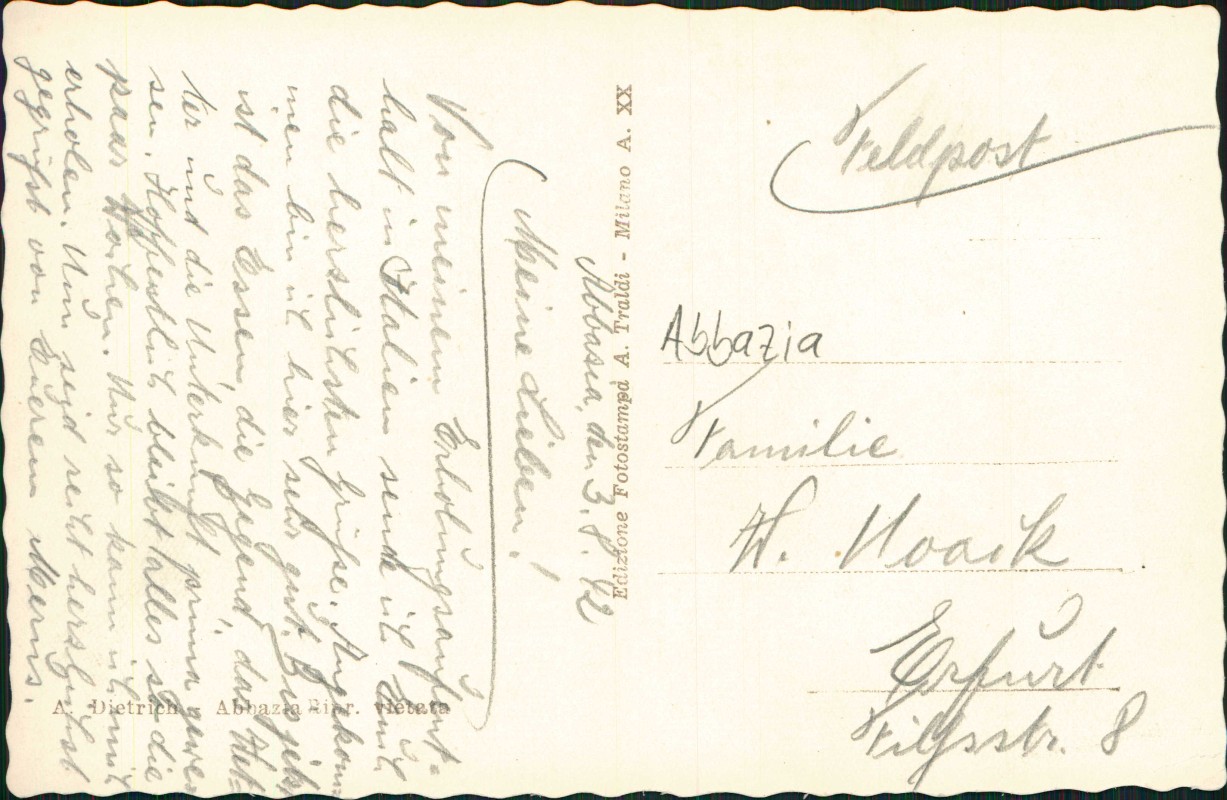 Abbasia, den 3.8.42
Meine Lieben!
Von meinem Erholungsaufent-
halt in Italien sende ich Euch
die herzlichsten Grüße. Angekom-
men bin ich hier sehr gut. Bis jetzt
ist das Essen, die Gegend, das Wet-
ter und die Unterkunft prima gewe-
sen. Hoffentlich bleibt alles so die
paar Wochen. Nur so kann ich mich
erholen. Nun seid recht herzlichst
gegrüßt von Eurem
Edizione Fotostampa A. Traldi - Milano A. XX
A. Dietrich - Abbazia Ripr. vietata
Feldpost
Abbazia
Familie
W. Noack
Erfurt
8